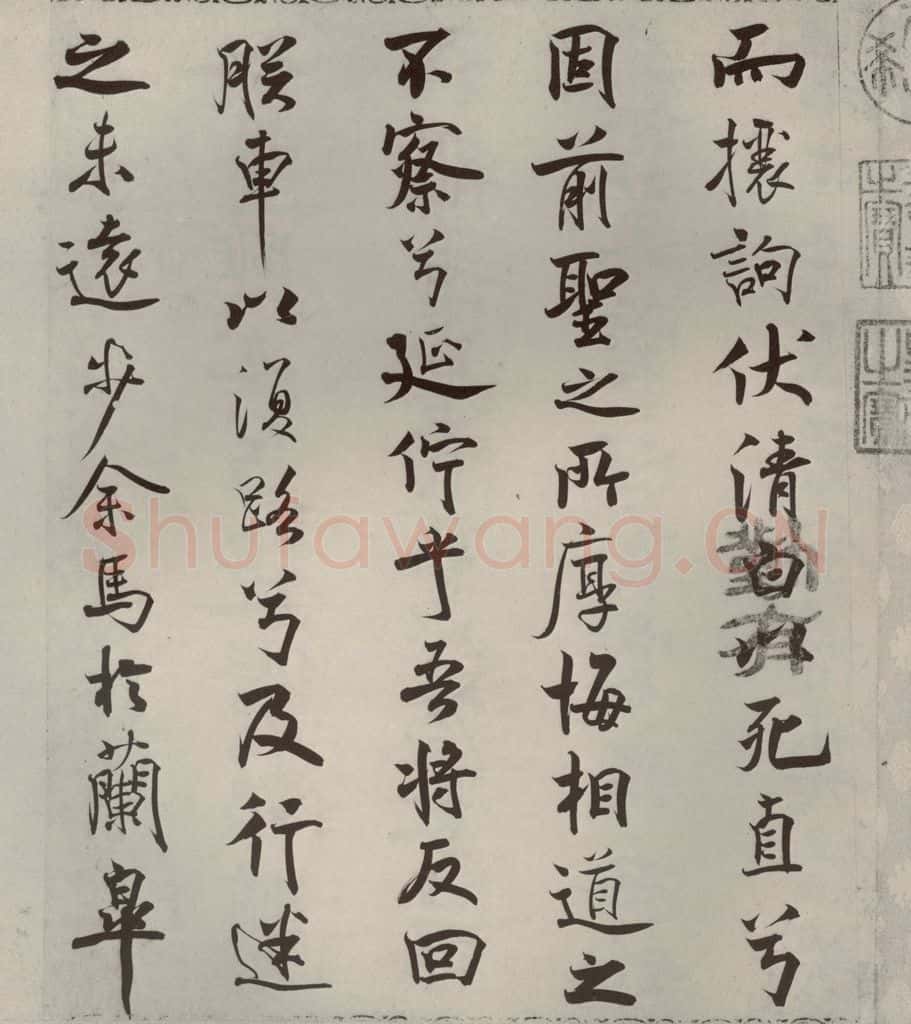 而攘訽伏清白以死直兮
固前聖之所厚悔相道之
不察兮延佇乎吾將反回
朕車以復路兮及行迷
之未遠步余馬於蘭皋
Shufawang.CN